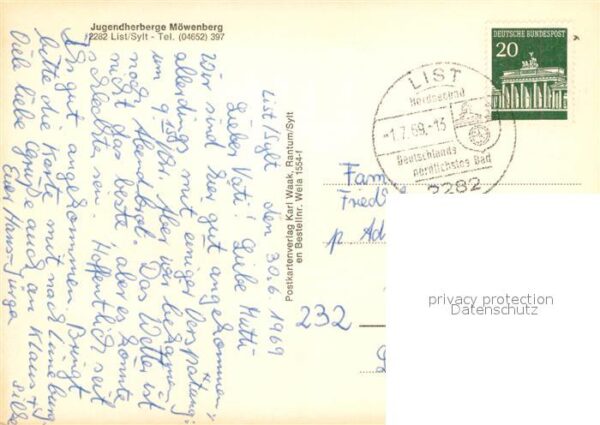 Jugendherberge Möwenberg
2282 List/Sylt - Tel. (04652) 397
List/Sylt den 30.6.1969
Lieber Vati! Liebe Mutti
Wir sind hier gut angekommen,
allerdings mit einiger Verspätung:
um 9 Uhr. Aber wir bekamen
noch Abendbrot. Das Wetter ist
nicht das beste, aber es könnte
schlechter sein. Hoffentlich seit
Ihr gut angekommen. Bringt
bitte die Karte mit nach Lüneburg.
Viele liebe Grüße auch an Klaus +
Euer Hans-Jürgen
Postkartenverlag Karl Waak, Rantum/Sylt
en Bestellnr. Wela 1554-f
DEUTSCHE BUNDESPOST
20
LIST
Nordseebad
-1.7.69.-13
Deutschlands
nördlichstes Bad
2282
Fam
Fried
p. Ad
232
privacy protection
Datenschutz